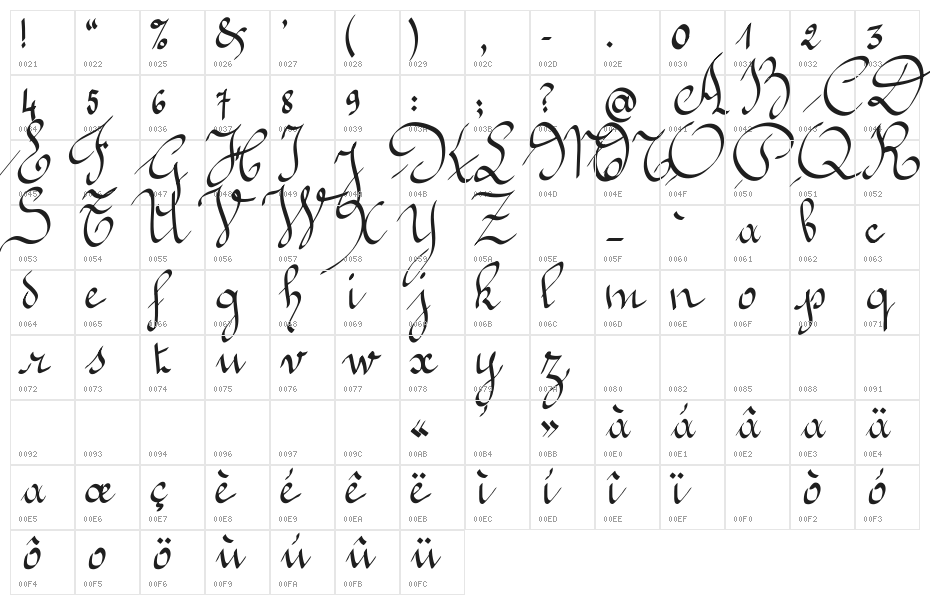 ! “ % & ' ( ) , - . 0 1 2 3
0021 0022 0025 0026 0027 0028 0029 002C 002D 002E 0030 0031 0032 0033
4 5 6 7 8 9 : ; ? @ A B C D
0034 0035 0036 0037 0038 0039 003A 003B 003F 0040 0041 0042 0043 0044
E F G H I J K L M N O P Q R
0045 0046 0047 0048 0049 004A 004B 004C 004D 004E 004F 0050 0051 0052
S T U V W X Y Z _ ` a b c
0053 0054 0055 0056 0057 0058 0059 005A 005E 005F 0060 0061 0062 0063
d e f g h i j k l m n o p q
0064 0065 0066 0067 0068 0069 006A 006B 006C 006D 006E 006F 0070 0071
r s t u v w x y z
0072 0073 0074 0075 0076 0077 0078 0079 007A 0080 0082 0085 0088 0091
« ´ » à á â a ä
0092 0093 0094 0096 0097 009C 00AB 00B4 00BB 00E0 00E1 00E2 00E3 00E4
a æ ç è é ê ë ì í î ï ò ó
00E5 00E6 00E7 00E8 00E9 00EA 00EB 00EC 00ED 00EE 00EF 00F0 00F2 00F3
ô o ö ù ú û ü
00F4 00F5 00F6 00F9 00FA 00FB 00FC